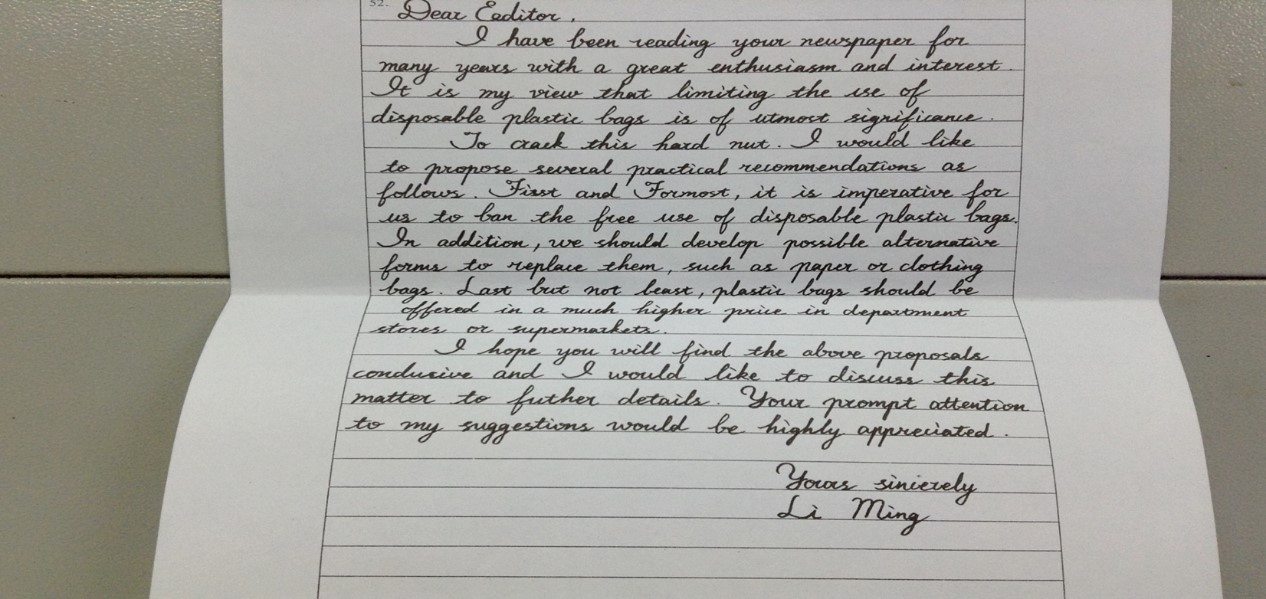 52.
Dear Eaditor,
I have been reading your newspaper for
many years with a great enthusiasm and interest.
It is my view that limiting the use of
disposable plastic bags is of utmost significance.
To crack this hard nut. I would like
to propose several practical recommendations as
follows. First and Formost, it is imperative for
us to ban the free use of disposable plastic bags.
In addition, we should develop possible alternative
forms to replace them, such as paper or clothing
bags. Last but not least, plastic bags should be
offered in a much higher price in department
stores or supermarkets.
I hope you will find the above proposals
conducive and I would like to discuss this
matter to futher details. Your prompt attention
to my suggestions would be highly appreciated.
Yours sincerely
Li Ming